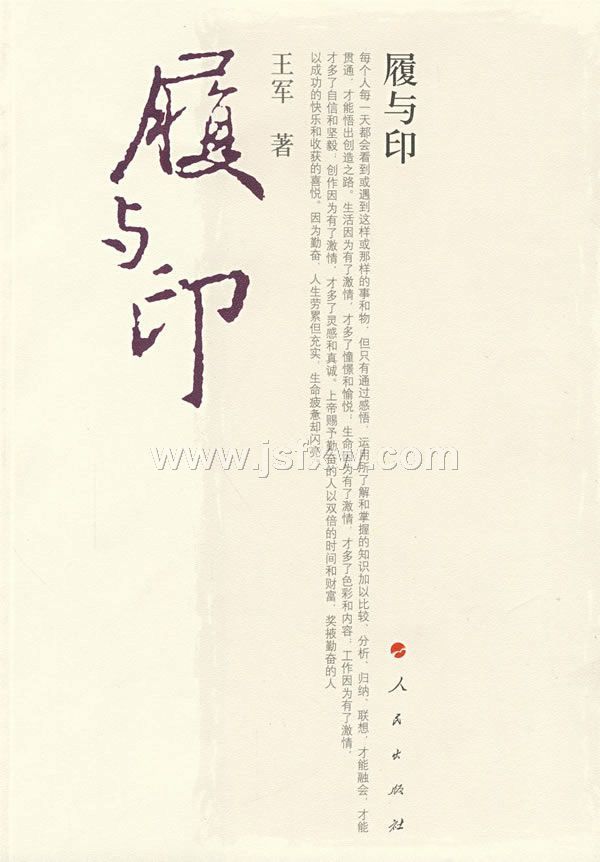 履与印
履与印
王军 著
每个人每一天都会看到或遇到这样或那样的事和物，但只有通过感悟，运用所了解和掌握的知识加以比较、分析、归纳、联想，才能融会，才能
贯通，才能悟出创造之路。生活因为有了激情，才多了憧憬和愉悦；生命因为有了激情，才多了色彩和内容；工作因为有了激情，
才多了自信和坚毅；创作因为有了激情，才多了灵感和真诚。上帝赐予勤奋的人以双倍的时间和财富，奖掖勤奋的人
以成功的快乐和收获的喜悦。因为勤奋，人生劳累但充实，生命疲惫却闪亮。
www.jsfxw.com
人民出版社